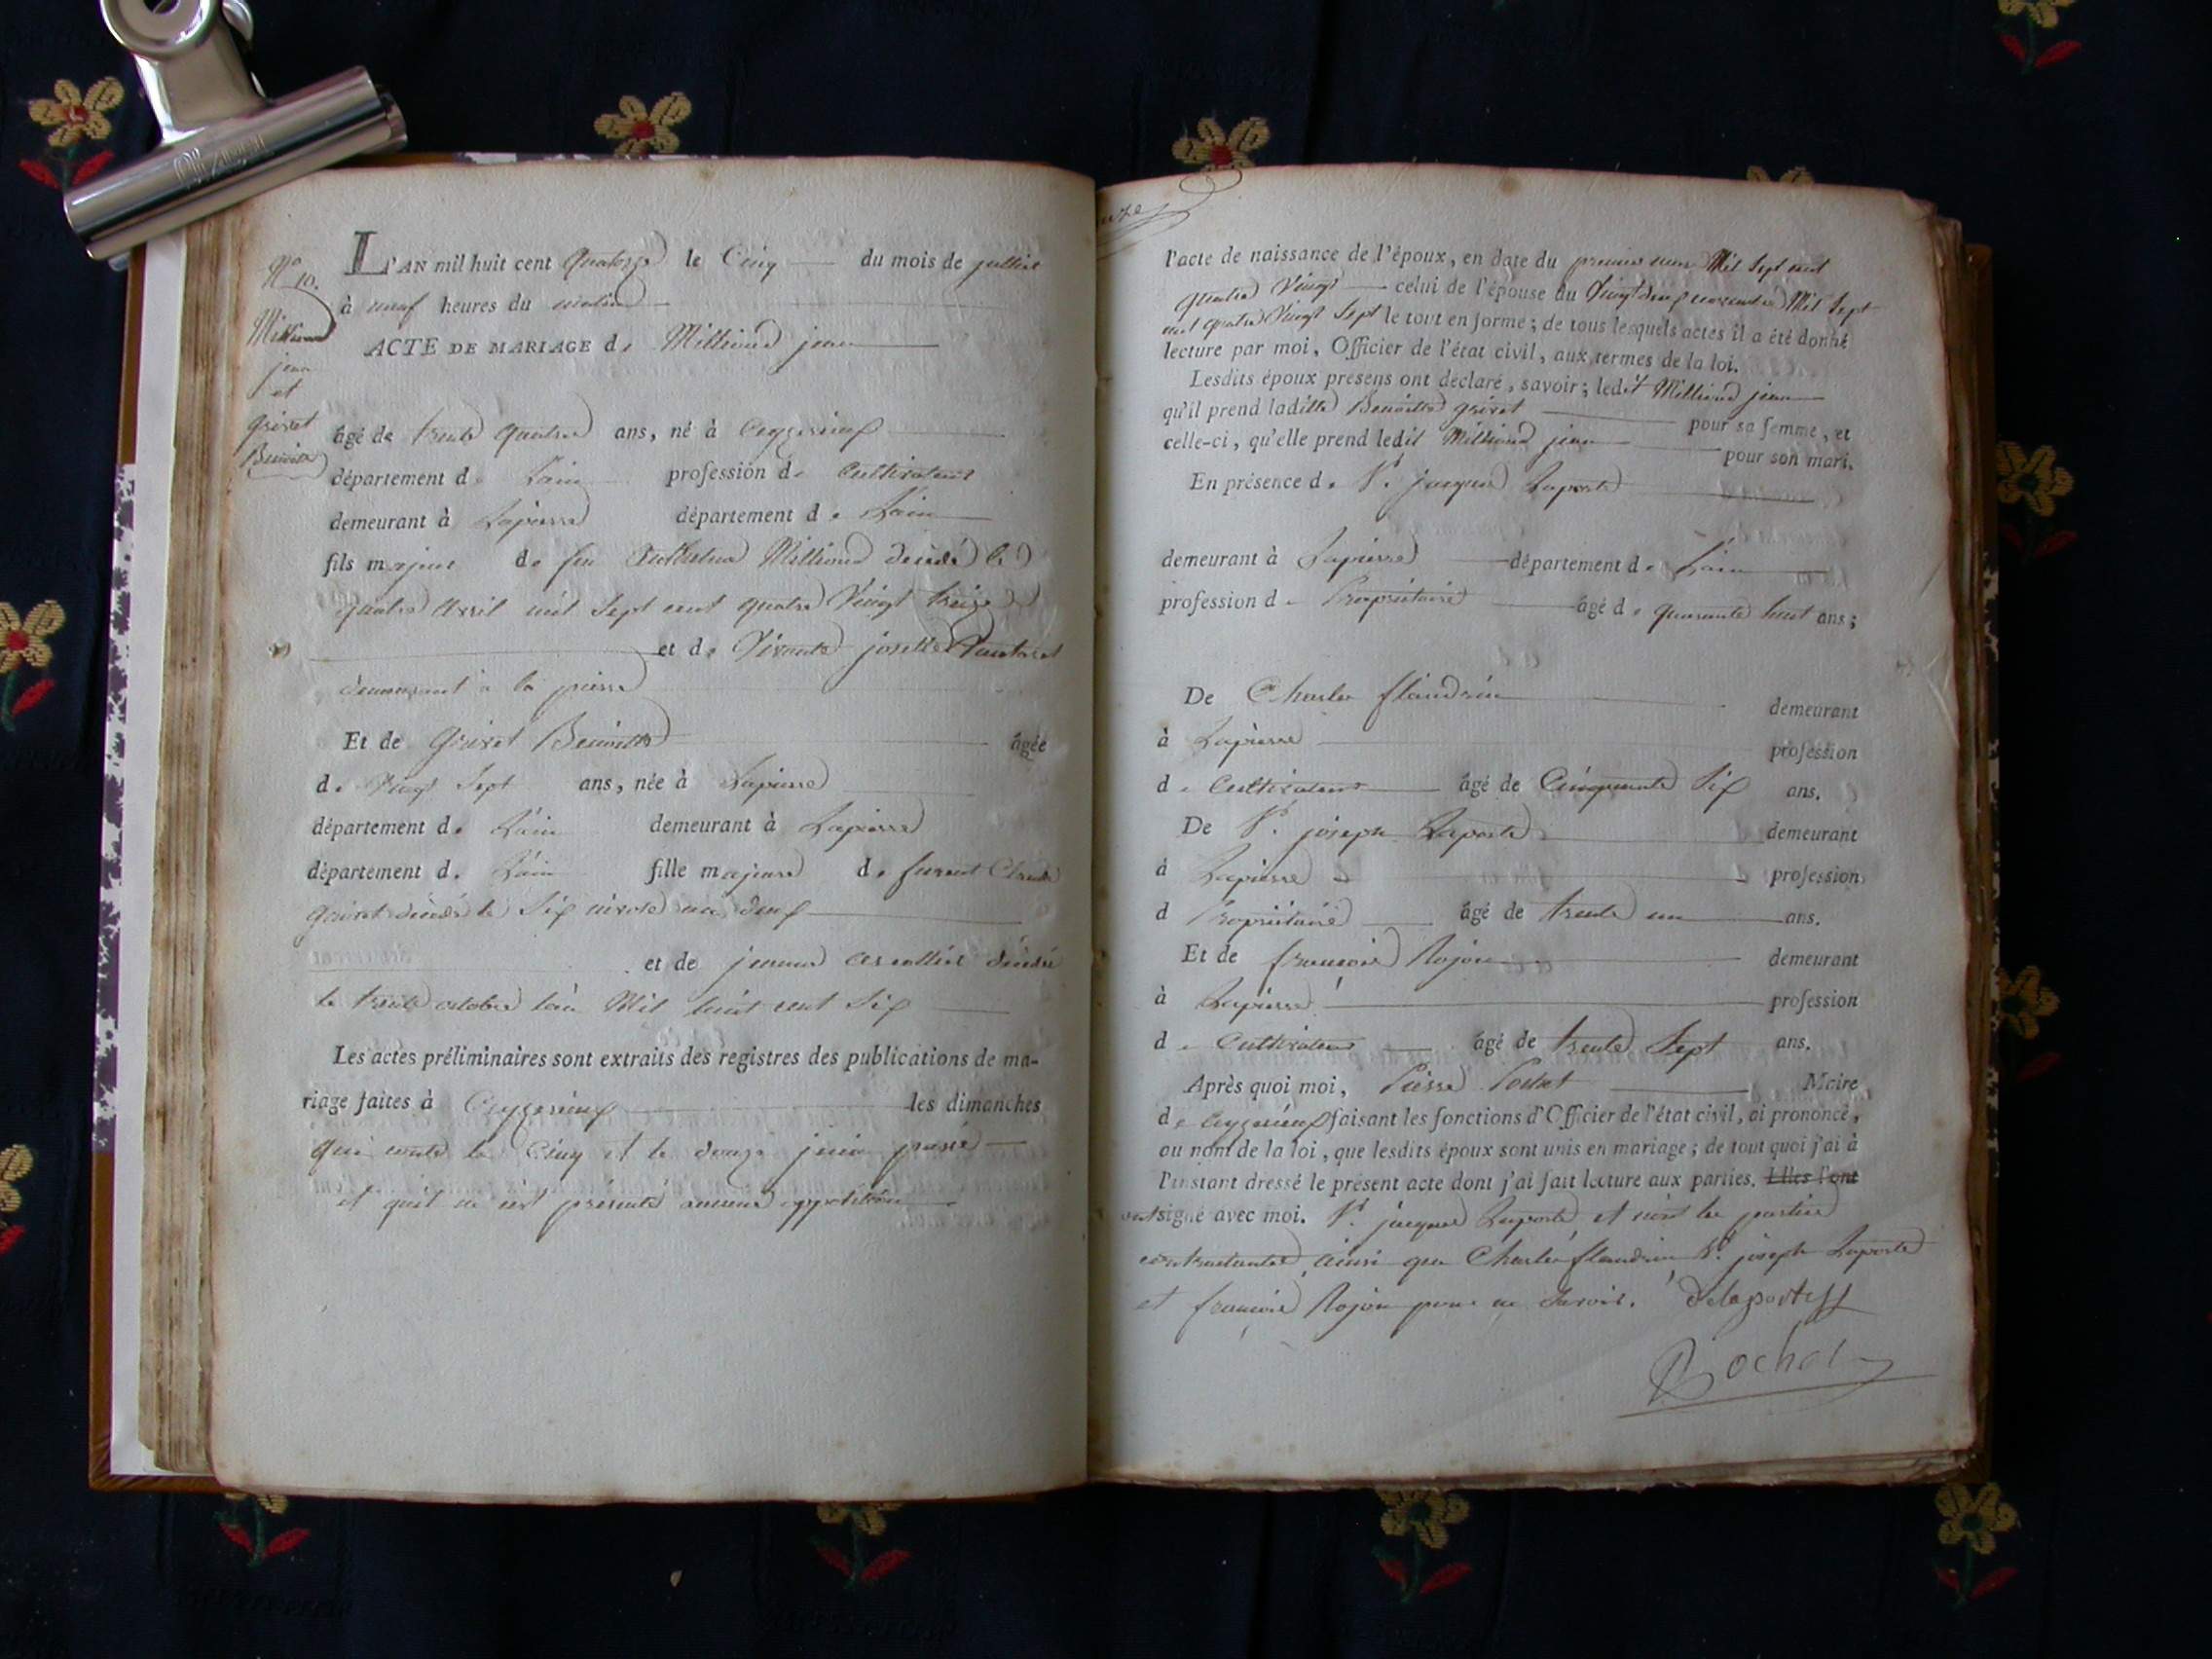 N° 10.
Milliand
jean
et
griset
Benoite
L'AN mil huit cent quatorze le Cinq du mois de juillet
à neuf heures du matin
ACTE DE MARIAGE de Milliand jean
âgé de trente quatre ans, né à Ceyzerieux
département de Lain profession de Cultivateur
demeurant à Lapierre département de Lain
fils majeur de feu Anthelme Milliand décédé le
quatre avril mil sept cent quatre Vingt treize
et de Vivante josette
demeurant a la pierre
Et de griset Benoitte âgée
de Vingt Sept ans, née à Lapierre
département de Lain demeurant à Lapierre
département de Lain fille majeure de furent Claude
griset décédé le Six nivose an deux
et de jeanne décédée
le trente octobre lan Mil huit cent Six
Les actes préliminaires sont extraits des registres des publications de ma-
riage faites à Ceyzerieux les dimanches
qui conte le Cinq et le douze juin passé
et quil ne sest présenté aucune opposition
l'acte de naissance de l'époux, en date du premier mars Mil Sept cent
quatre Vingt celui de l'épouse du Vingt deux novembre Mil Sept
cent quatre Vingt Sept le tout en forme; de tous lesquels actes il a été donné
lecture par moi, Officier de l'état civil, aux termes de la loi.
Lesdits époux présens ont déclaré, savoir; ledit Milliand jean
qu'il prend laditte Benoitte griset pour sa femme, et
celle-ci, qu'elle prend ledit Milliand jean pour son mari.
En présence de Sr. jacques Laporte
demeurant à Lapierre département de Lain
profession de Propriétaire âgé de quarante huit ans;
De Charles flandrin demeurant
à Lapierre profession
de Cultivateur âgé de Cinquante Six ans.
De Sr. joseph Laporte demeurant
à Lapierre profession
d Propriétaire âgé de trente un ans.
Et de francois Rojon demeurant
à Lapierre profession
de Cultivateur âgé de trente Sept ans.
Après quoi moi, Pierre Maire
de Ceyzerieux faisant les fonctions d'Officier de l'état civil, ai prononcé,
au nom de la loi, que lesdits époux sont unis en mariage; de tout quoi j'ai à
l'instant dressé le présent acte dont j'ai fait lecture aux parties. Elles l'ont
ont signé avec moi. Sr. jacques Laporte et non les parties
contractantes ainsi que Charles flandrin Sr. joseph Laporte
et francois Rojon pour ne Savoir. Delaporte
Rochet